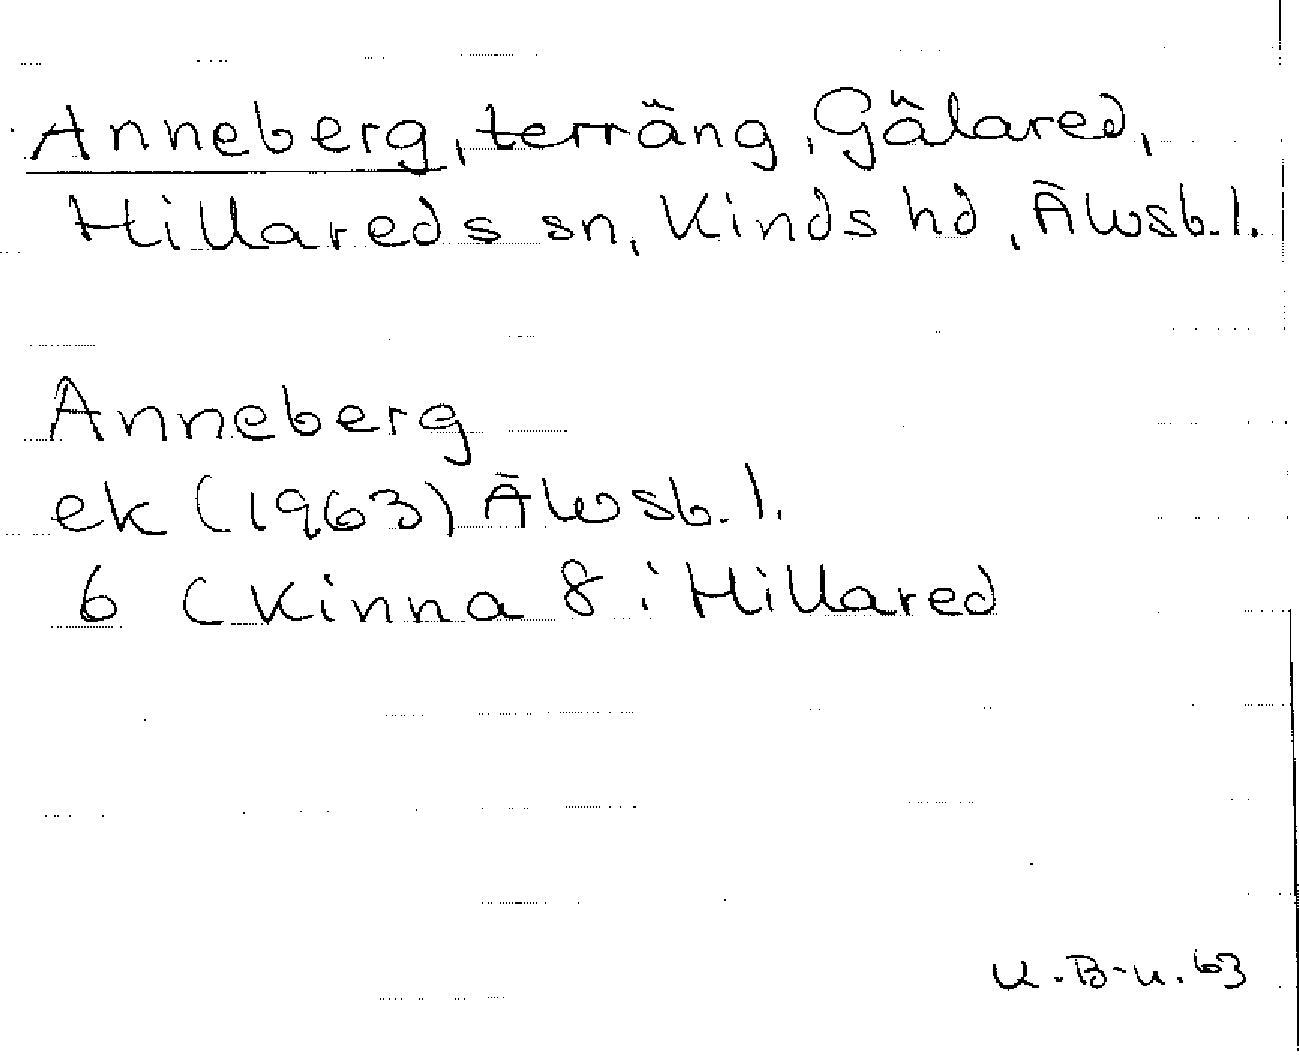 Anneberg, terräng, Gälared,
Hillareds sn, Kinds hd, Älvsb. l.
Anneberg
ek (1963) Älvsb. l.
6 (Kinna 8: Hillared
K. B-n. 63